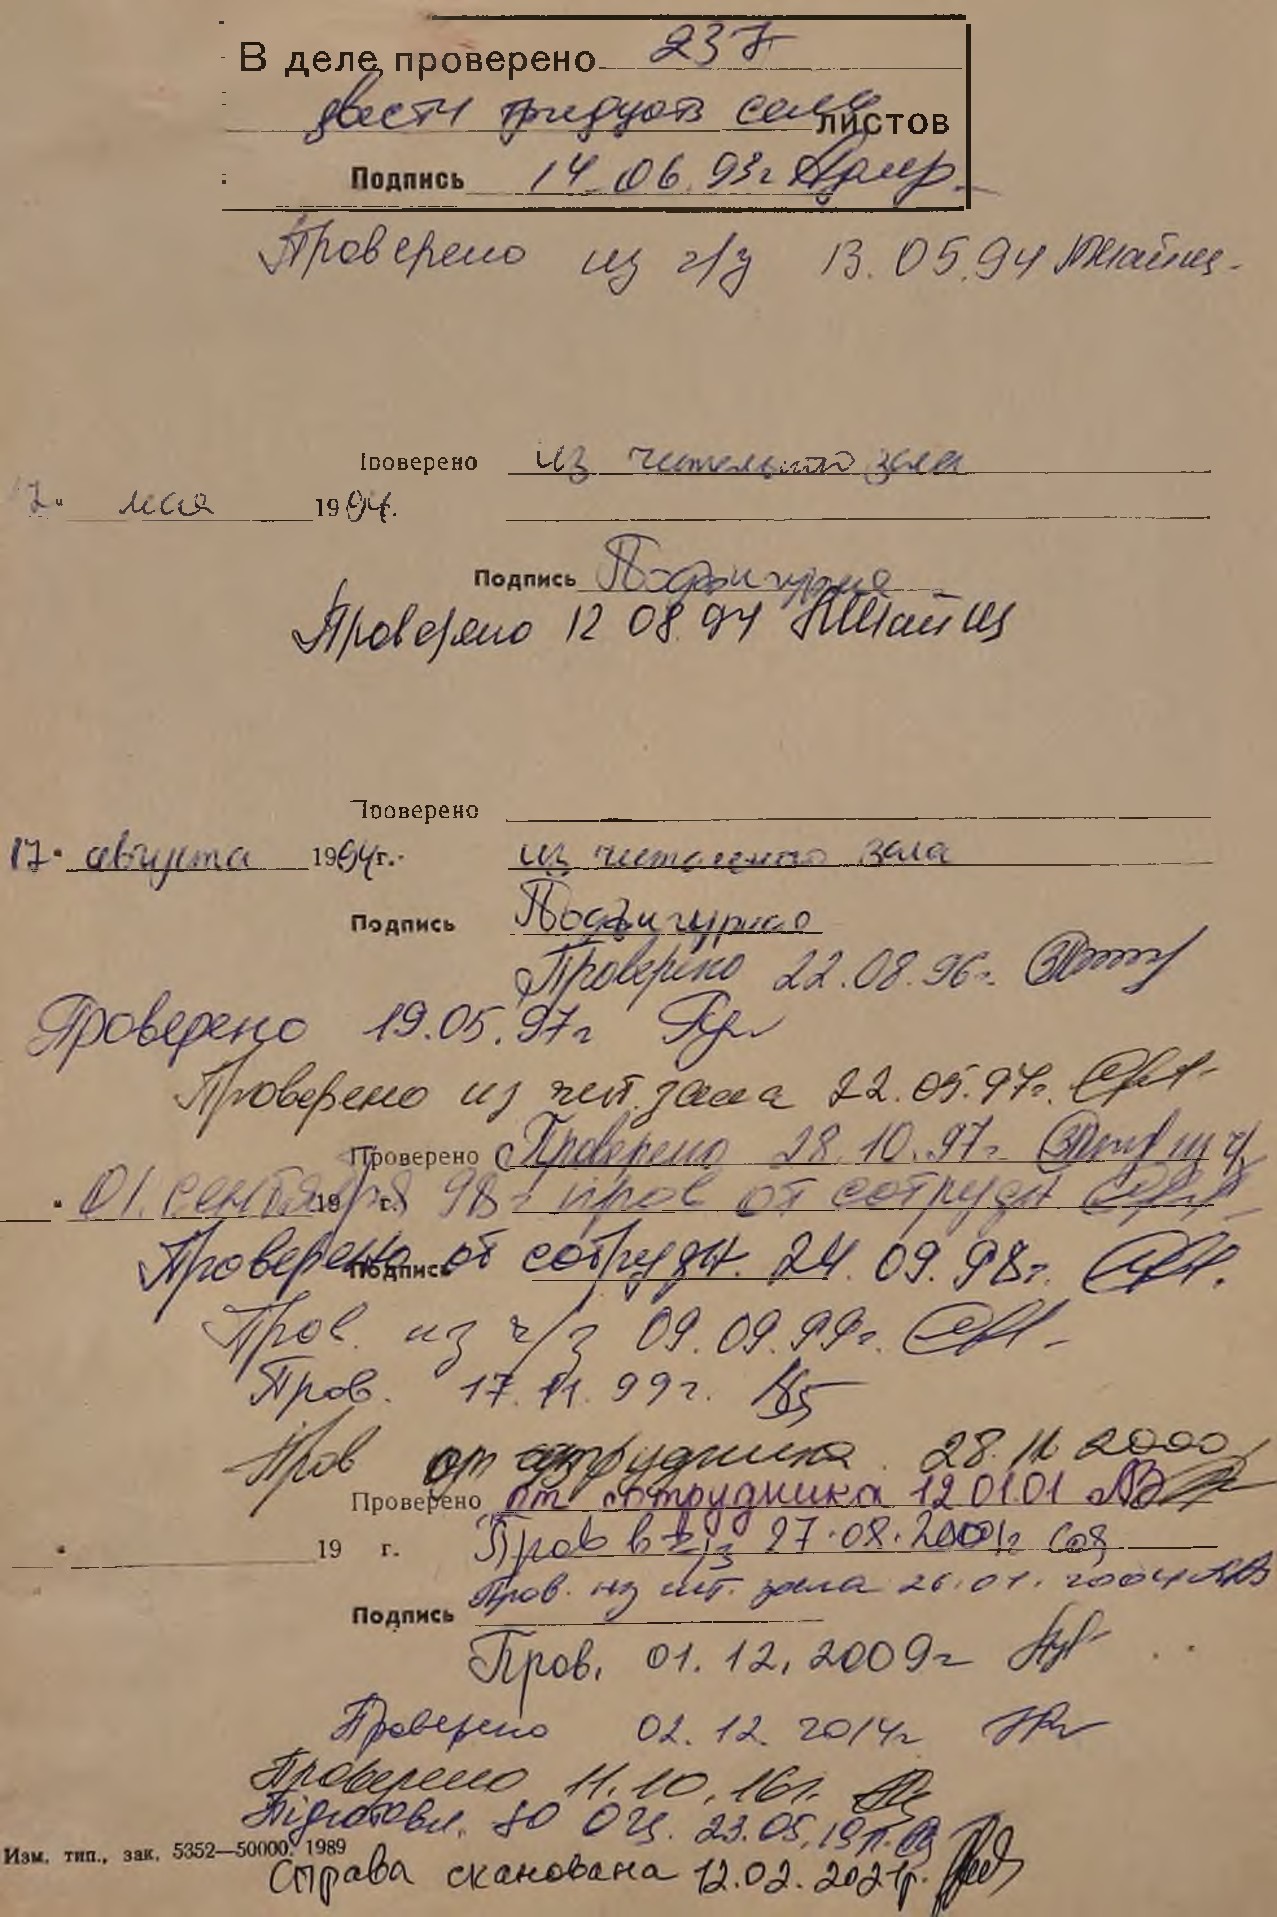 В деле проверено 237
двести тридцать семь листов
Подпись 14.06.93г
Проверено из ч/з 13.05.94
Проверено из читального зала
17. мая 1994.
Подпись
Проверено 12 08.94
Проверено
17. августа 1994г.. из читального зала
Подпись
Проверено 22.08.96г.
Проверено 19.05.97г
Проверено из чит. зала 22.05.97г.
Проверено Проверено 28.10.97г.
01. сентября 19 98 г. пров от сотрудн
Проверено от сотрудн. 24.09.98г.
Подпись
Пров. из ч/з 09.09.99г.
Пров. 17.11.99г.
Пров от сотрудника 28.11 2000
Проверено от сотрудника 12 01 01
19 г. Пров в ч/з 27.08.2001г
Пров. из чит. зала 26.01.2004
Подпись
Пров. 01.12.2009г
Проверено 02.12.2014г
Проверено 11.10.16г.
Підготовл. до ОЦ. 23.05.19р.
Изм. тип., зак. 5352—50000. 1989
Справа сканована 12.02.2021р.